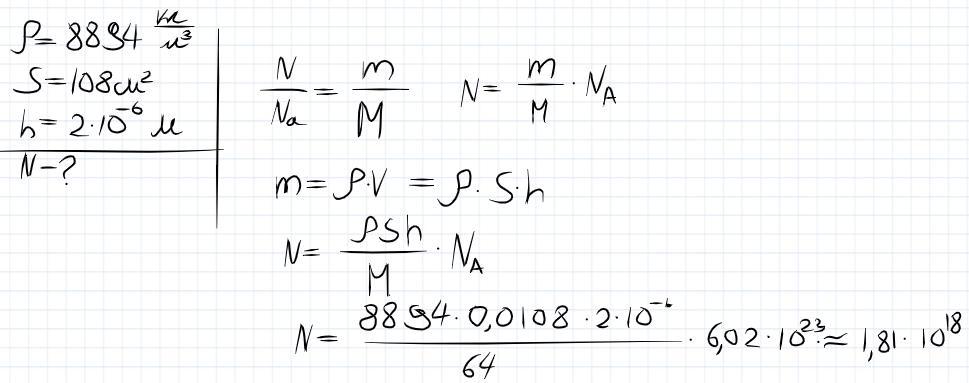 ρ = 8894 кг/м³
S = 108 см²
h = 2·10⁻⁶ м
N - ?
N/Nₐ = m/M   N = m/M · N_A
m = ρ·V = ρ·S·h
N = ρSh/M · N_A
N = 8894·0,0108·2·10⁻⁶/64 · 6,02·10²³ ≈ 1,81·10¹⁸